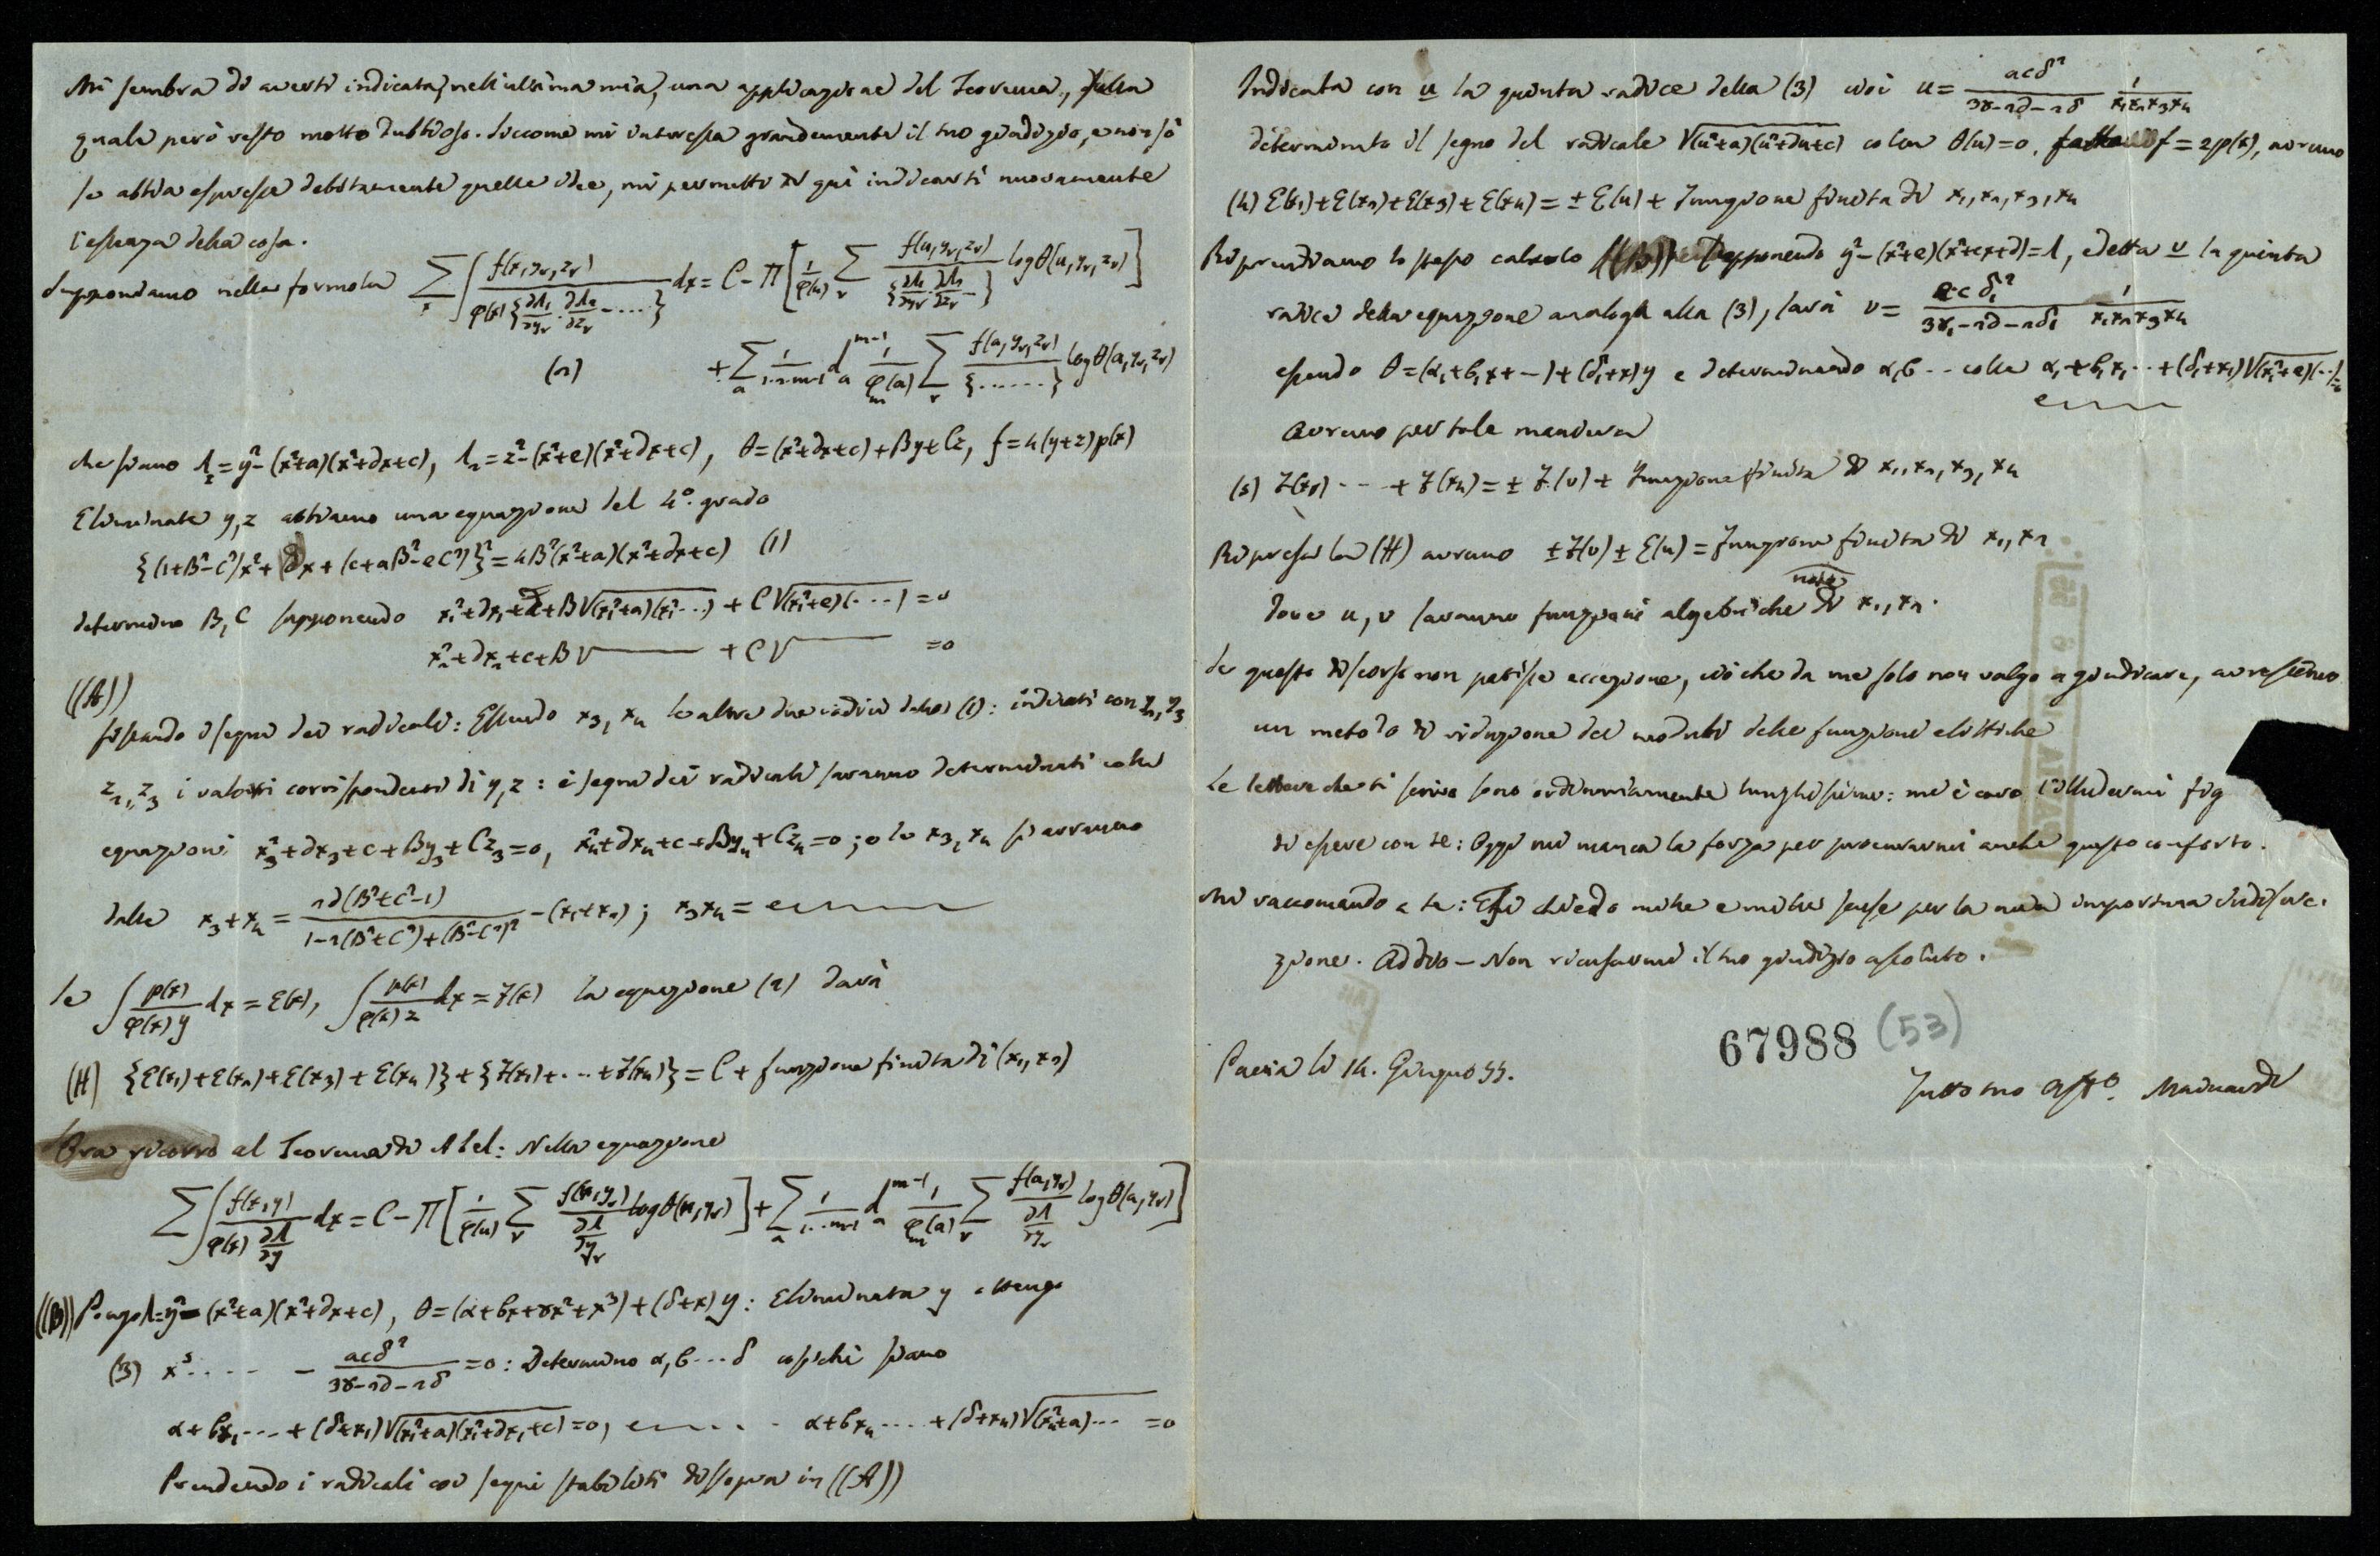 Mi sembra di averti indicata, nell'ultima mia, una applicazione del Teorema, sulla
quale però resto molto dubbioso. Siccome mi interessa grandemente il tuo giudizio, e non sò
se abbia espresse debitamente quelle idee, mi permetto di quì indicarti nuovamente
l'essenza della cosa.
Supponiamo nella formola Σ_x ∫ f(x,y_r,z_r) / φ(x){∂Λ₁/∂y_r · ∂Λ₂/∂z_r - ....} dx = C - Π[1/φ(u) Σ_r f(u,y_r,z_r) / {∂Λ₁/∂y_r · ∂Λ₂/∂z_r -} log θ(u,y_r,z_r)]
(2) + Σ_a 1/1.2..m-1 d_a^{m-1} 1/φ_m(a) Σ_r f(a,y_r,z_r) / {......} log θ(a,y_r,z_r)
che siano Λ₁ = y² - (x²+a)(x²+∂x+c), Λ₂ = z² - (x²+e)(x²+∂x+c), θ = (x²+∂x+c) + By + Cz, f = 4(y+z)p(x)
Eliminate y, z abbiamo una equazione del 4°. grado
{(1+B²-C²)x² + ∂x + (c+aB²-eC²)}² = 4B²(x²+a)(x²+∂x+c) (1)
determino B, C supponendo x₁²+∂x₁+c+B√(x₁²+a)(x₁²...) + C√(x₁²+e)(....) = 0
x₂²+∂x₂+c+B√ + C√ = 0
((A))
fissando i segni dei radicali: Essendo x₃, x₄ le altre due radici della (1): indicati con y₂, y₃
z₂, z₃ i valori corrispondenti di y, z: i segni dei radicali saranno determinati colle
equazioni x₃²+∂x₃+c+By₃+Cz₃=0, x₄²+∂x₄+c+By₄+Cz₄=0; e le x₃, x₄ si avranno
dalle x₃+x₄ = 2∂(B²+C²-1) / 1-2(B²+C²)+(B²-C²)² - (x₁+x₂); x₃x₄ = e
Se ∫ p(x)/φ(x)y dx = Ɛ(x), ∫ p(x)/φ(x)z dx = F(x) la equazione (2) darà
(H) {Ɛ(x₁)+Ɛ(x₂)+Ɛ(x₃)+Ɛ(x₄)} + {F(x₁)+...+F(x₄)} = C + funzione finita di (x₁, x₂)
Ora ricorro al Teorema di Abel: Nella equazione
Σ∫ f(x,y) / φ(x) ∂Λ/∂y dx = C - Π[1/φ(u) Σ_r f(u,y_r) / ∂Λ/∂y_r log θ(u,y_r)] + Σ_a 1/1...m-1 d_a^{m-1} 1/φ_m(a) Σ_r f(a,y_r) / ∂Λ/∂y_r log θ(a,y_r)]
((B)) Pongo Λ=y²-(x²+a)(x²+∂x+c), θ = (α+βx+γx²+x³)+(δ+x)y: Eliminata y ottengo
(3) x⁵..... - acδ² / 3γ-2∂-2δ = 0: Determino α, β...δ cosichè siano
α+βx₁...+(δ+x₁)√(x₁²+a)(x₁²+∂x₁+c) = 0, e .... α+βx₄....+(δ+x₄)√(x₄²+a)... = 0
Prendendo i radicali coi segni stabiliti disopra in ((A))
Indicata con u la quinta radice della (3) cioè u = acδ² / 3γ-2∂-2δ 1/x₁x₂x₃x₄
determinato il segno del radicale √(u²+a)(u²+∂u+c) colla θ(u)=0. f=2p(x), avremo
(4) Ɛ(x₁)+Ɛ(x₂)+Ɛ(x₃)+Ɛ(x₄) = ± Ɛ(u) + Funzione finita di x₁, x₂, x₃, x₄
Riprendiamo lo stesso calcolo ((B)) supponendo y²-(x²+e)(x²+∂x+c)=Λ, e detta v la quinta
radice della equazione analoga alla (3), sarà v = ecδ₁² / 3γ₁-2∂-2δ₁ 1/x₁x₂x₃x₄
essendo θ=(α₁+β₁x+--)+(δ₁+x)y e determinando α,β -- colle α₁+β₁x₁...+(δ₁+x₁)√(x₁²+e)(..)=0
e
avremo per tale maniera
(5) F(x₁) --- + F(x₄) = ± F(v) + Funzione finita di x₁, x₂, x₃, x₄
Ripresa la (H) avremo ±F(v) ± Ɛ(u) = Funzione finita di x₁, x₂
note
dove u, v saranno funzioni algebriche di x₁, x₂.
Se questo discorso non patisce eccezione, ciò che da me solo non valgo a giudicare, avressimo
un metodo di riduzione dei moduli delle funzioni elittiche
Le lettere che ti scrivo sono ordinariamente lunghissime: mi è caro l'illudermi
di essere con te: Oggi mi manca la forza per procurarmi anche questo conforto.
Mi raccomando a te: Ti chiedo mille e mille scuse per la mia importuna indiscre-
zione. Addio — Non ricusarmi il tuo giudizio assoluto.
67988 (53)
Pavia li 14. Giugno 55.
Tutto tuo Aff.º Mainardi